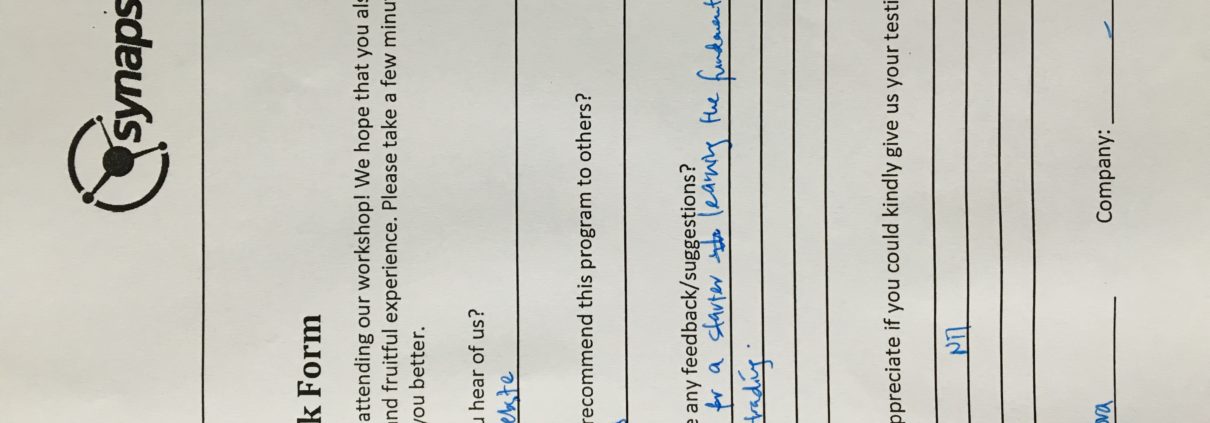 synaps
k Form
attending our workshop! We hope that you als
nd fruitful experience. Please take a few minu
you better.
u hear of us?
ebsite
recommend this program to others?
e any feedback/suggestions?
for a starter learning the fundament
trading.
ppreciate if you could kindly give us your testi
Nil
ova Company: -